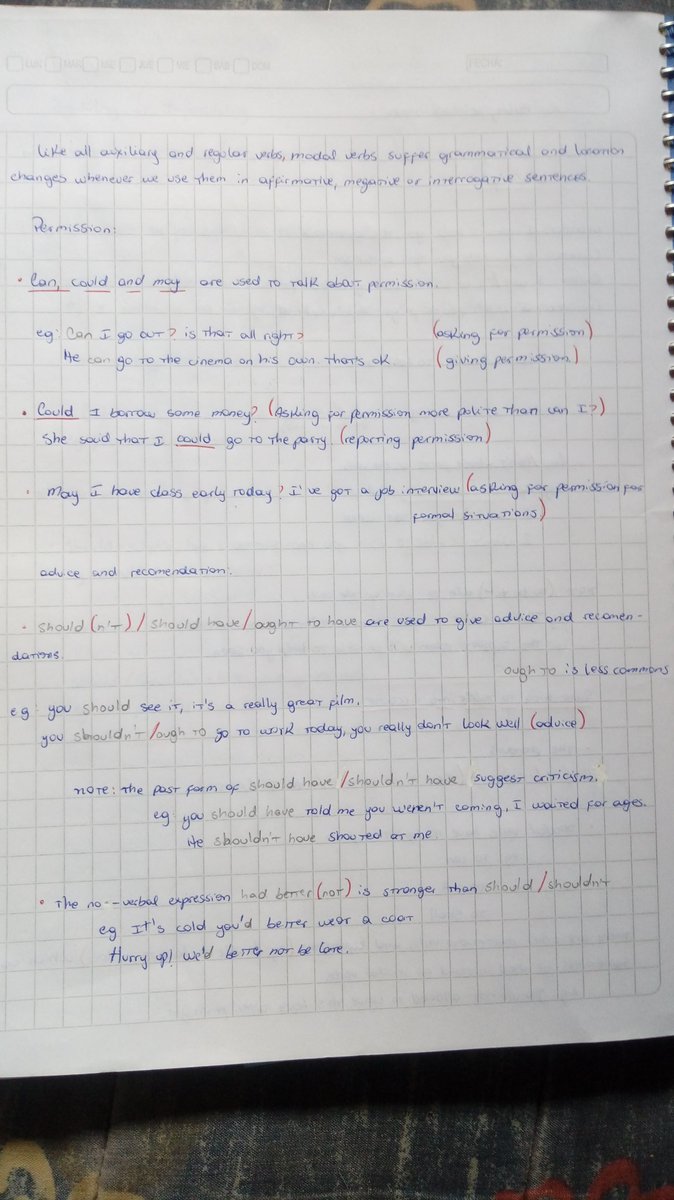 LUN MAR MIE JUE VIE SAB DOM FECHA:
Like all auxiliary and regular verbs, modal verbs suffer grammatical and location
changes whenever we use them in affirmative, negative or interrogative sentences.
Permission:
• Can, could and may are used to talk about permission.
eg: Can I go out? is that all right? (asking for permission)
He can go to the cinema on his own. that's ok (giving permission)
• Could I borrow some money? (Asking for permission more polite than can I?)
She said that I could go to the party. (reporting permission)
• May I have class early today? I've got a job interview (asking for permission for
formal situations)
advice and recomendation:
• Should (n't) / should have / ought to have are used to give advice and recomen-
dations.
ough to is less commons
eg: you should see it, it's a really great film.
you shouldn't / ough to go to work today, you really don't look well (advice)
note: the past form of should have / shouldn't have suggest criticism.
eg: you should have told me you weren't coming, I waited for ages.
He shouldn't have shouted at me.
• The no--verbal expression had better (not) is stronger than should / shouldn't
eg It's cold you'd better wear a coat
Hurry up! we'd better not be late.